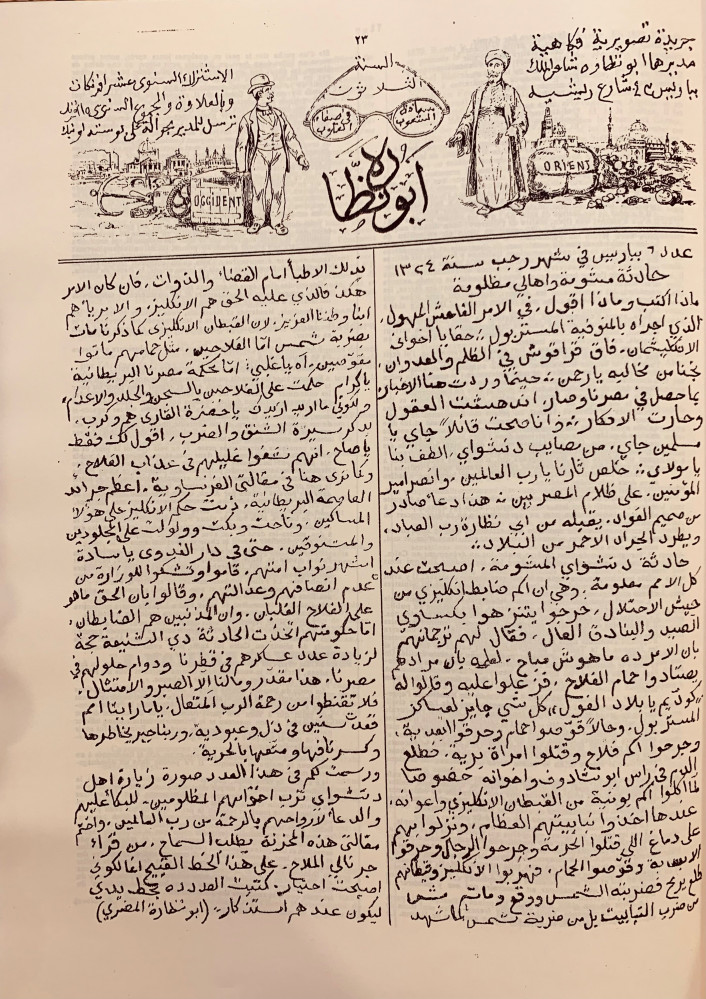 ٢٣
جريدة تصويرية فكاهية
مديرها ابو نظاره شاعر الملك
بباريس ٤٣ شارع ريشيه
السنة
الثلاثون
سعادة الشعوب
في صفاء القلوب
ابو نظاره
الاشتراك السنوى عشر افرنكات
وبالعلاوة والجورنال السنوى
ترسل للمدير حوالة على بوسته
OCCIDENT
ORIENT
عدد ٦ بباريس في شهر رجب سنة ١٣٢٤
حادثة مشومة واهالي مظلومة
ماذا اكتب وماذا اقول. في الامر الفاحش المهول.
الذي اجراه بالمنوفية المستر بول. حقا يا اخواني
الانكليشمان. فاق قراقوش في الظلم والعدوان.
نجنا من مخاليبه يا رحمن. حينما وردت هنا الاخبار
بما حصل في مصرنا وصار. اندهشت العقول
وحارت الافكار. ذا ناصحت قائلاً جاي يا
مسلمين جاي. من مصايب دنشواي. الطف بنا
يا مولاي. خلص تارنا يا رب العالمين. وانصر امير
المؤمنين. على ظلام المصريين. هذا دعا صادر
من صميم الفواد. يقبله من ابي نظارة رب العباد.
ويطرد الجراد الاحمر من البلاد.
حادثة دنشواي المشومة. اصبحت عند
كل الامم معلومة. وهي ان اكم ضابط انكليزي من
جيش الاحتلال. خرجوا يتنزهوا بكساوي
الصيد والبنادق العال. فقال لهم ترجمانهم
بان الامر ده ما هوش مباح. لعلمه بان مرادهم
يصتادوا حمام الفلاح. فزعلوا عليه وقالوا له
"كودّيم يا بلاد الفول" كل شي جايز لعساكر
المستر بول. وحالاً قوّصوا الحمام وحرقوا الغلة.
وجرحوا اكم فلاح وقتلوا امراة برية. فطلع
الدم في راس ابو شادوف واخوانه. خصوصا
لما اكلوا اكم بونية من القبطان الانكليزي واعوانه.
عندها اخذوا نبابيتهم العظام. ونزلوا بهم
على دماغ اللي قتلوا الحرمة وجرحوا الرجال وحرقوا
وقوّصوا الحمام. فهربوا الانكليز وقبطانهم
طلع يرمح فضربته الشمس ووقع ومات. مش
من ضرب النبابيت بل من ضربة شمس كما شهد
بذلك الاطبا امام القضاة والذوات. فان كان الامر
هكذا فالذي عليه الحق هم الانكليز. والابريا هم
ابنا وطننا العزيز. لان القبطان الانكليزى كما ذكرنا مات
بضربة شمس اما الفلاحين. مثل حمامهم ماتوا
مقوّصين. آه يا غلبي. اما محكمة مصرنا البريطانية
يا كرام. حكمت على الفلاحين بالسجن والجلد والاعدام.
ولكوني ما اريد ازيدك يا حضرة القاري هم وكرب.
بذكر سيرة الشنق والضرب. اقول لك فقط
يا صاح. انهم شفوا غليلهم في عذاب الفلاح.
وكما ترى هنا في مقالتي الفرنساوية. اعظم جرائد
العاصمة البريطانية. ذمت حكم الانكليز على هؤلا
المساكين. وناحت وبكت وولولت على المجلودين
والمشنوقين. حتى في دار الندوى يا سادة
اشهر نواب امتهم. قاموا وتشكوا للوزارة من
عدم انصافهم وعدالتهم. وقالوا بان الحق ماهو
على الفلاح الغلبان. وان المذنبين هم الضابطان.
اما حكومتهم اتخذت الحادثة دي الشنيعة حجة
لزيادة عدد عساكرهم في قطرنا ودوام حلولهم في
مصرنا. هذا مقدّر وما لنا الا الصبر والامتثال.
فلا تقنطوا من رحمة الرب المتعال. ياما راينا امم
قعدت سنين في ذل وعبودية. وربنا جبر بخاطرها
وكسر نافها ومتعها بالحرية.
ورسمت لكم في هذا العدد صورة زيارة اهل
دنشواي ترب اخوانهم المظلومين. للبكا عليهم
والدعا لارواحهم بالرحمة من رب العالمين. واختم
مقالتي هذه المحزنة بطلب السماح. من قراء
جرنالي الملاح. على هذا الخط القبيح لكوني
اصبحت اختيار. كتبت العدد ده بخط يدي
ليكون عندهم استذكار. (ابو نظارة المصري)